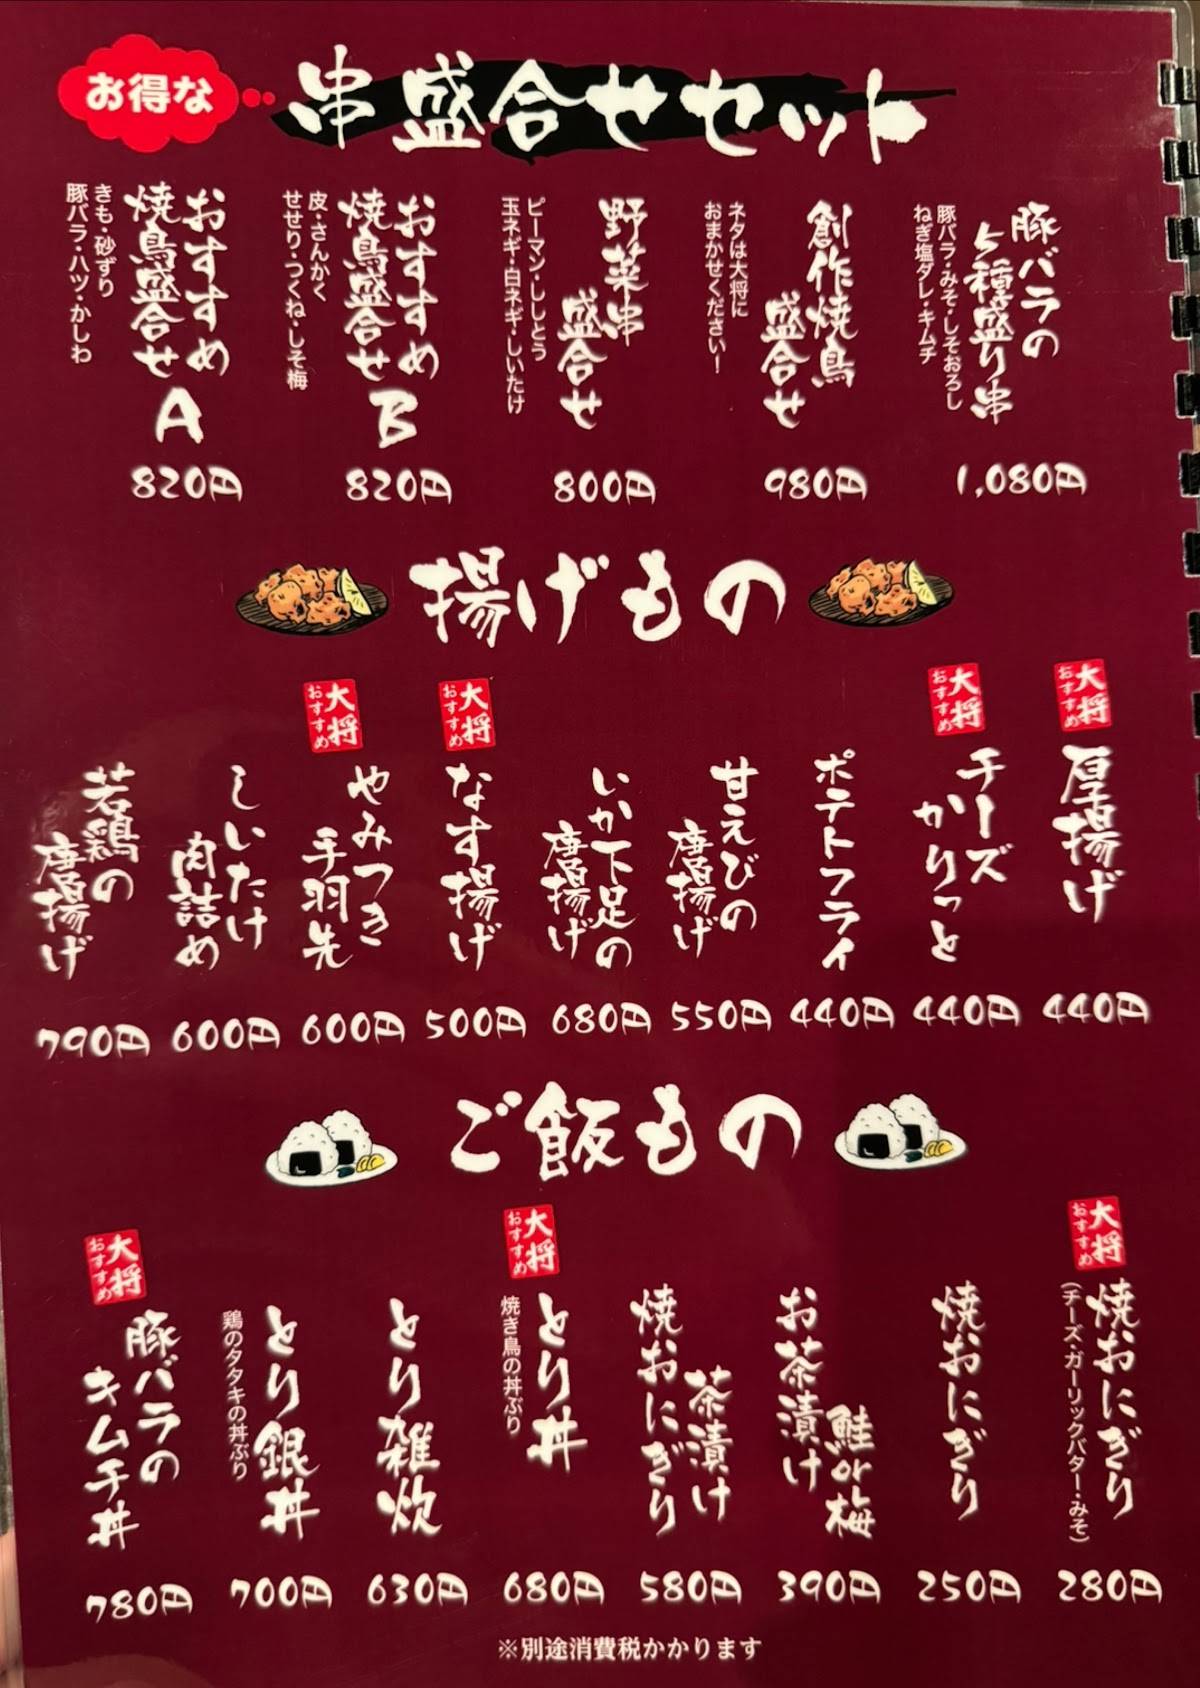 お得な
串盛合せセット
豚バラの
5種盛り串
豚バラ・みそ・しそおろし
ねぎ塩ダレ・キムチ
1,080円
創作焼鳥
盛合せ
ネタは大将に
おまかせください!
980円
野菜串
盛合せ
ピーマン・ししとう
玉ネギ・白ネギ・しいたけ
800円
おすすめ
焼鳥盛合せ
B
皮・さんかく
せせり・つくね・しそ梅
820円
おすすめ
焼鳥盛合せ
A
きも・砂ずり
豚バラ・ハツ・かしわ
820円
揚げもの
大将
おすすめ
厚揚げ
440円
大将
おすすめ
チーズ
かりっと
440円
ポテトフライ
440円
甘えびの
唐揚げ
550円
いか下足の
唐揚げ
680円
大将
おすすめ
なす揚げ
500円
大将
おすすめ
やみつき
手羽先
600円
しいたけ
肉詰め
600円
若鶏の
唐揚げ
790円
ご飯もの
大将
おすすめ
焼おにぎり
(チーズ・ガーリックバター・みそ)
280円
焼おにぎり
250円
鮭or梅
お茶漬け
390円
茶漬け
焼おにぎり
580円
大将
おすすめ
とり丼
焼き鳥の丼ぶり
680円
とり雑炊
630円
とり銀丼
鶏のタタキの丼ぶり
700円
大将
おすすめ
豚バラの
キムチ丼
780円
※別途消費税かかります